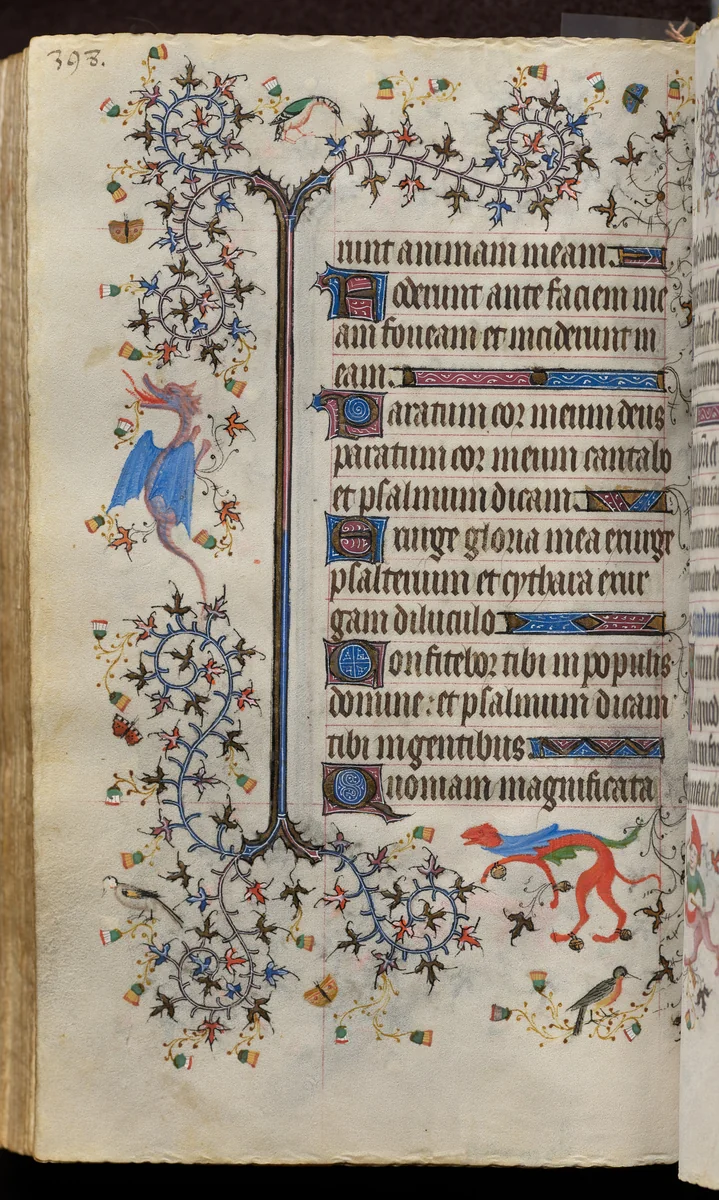 393.
runt animam meam.
Foderunt ante faciem me
am foueam et inciderunt in
eam.
Paratum cor meum deus
paratum cor meum cantabo
et psalmum dicam.
Exurge gloria mea exurge
psalterium et cythara exur
gam diluculo
Confitebor tibi in populis
domine: et psalmum dicam
tibi in gentibus
Quoniam magnificata